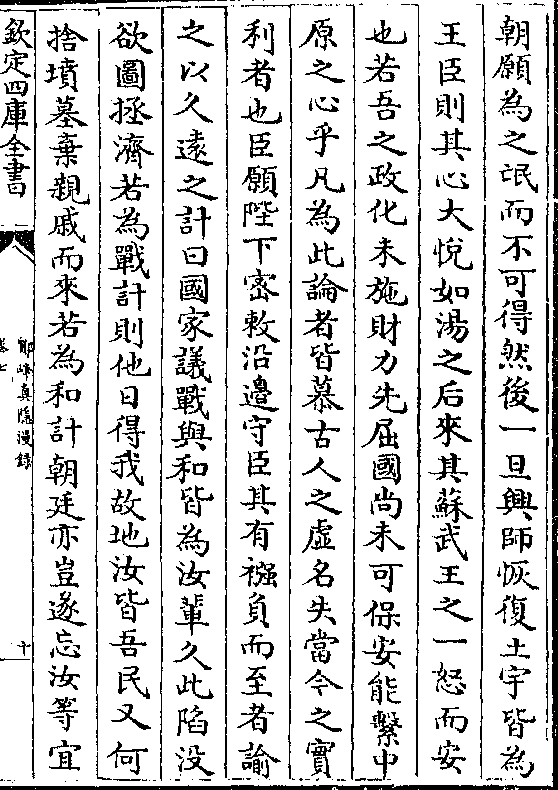 朝願為之氓而不可得然後一旦興師恢復土宇皆為
王臣則其心大悅如湯之后來其蘇武王之一怒而安
也若吾之政化未施財力先屈國尚未可保安能繫中
原之心乎凡為此論者皆慕古人之虛名失當今之實
利者也臣願陛下密敕沿邊守臣其有襁負而至者諭
之以久遠之計曰國家議戰與和皆為汝輩久此陷没
欲圖拯濟若為戰計則他日得我故地汝皆吾民又何
捨墳墓棄親戚而來若為和計朝廷亦豈遂忘汝等宜
欽定四庫全書
鄮峰真隱漫録
卷七
十